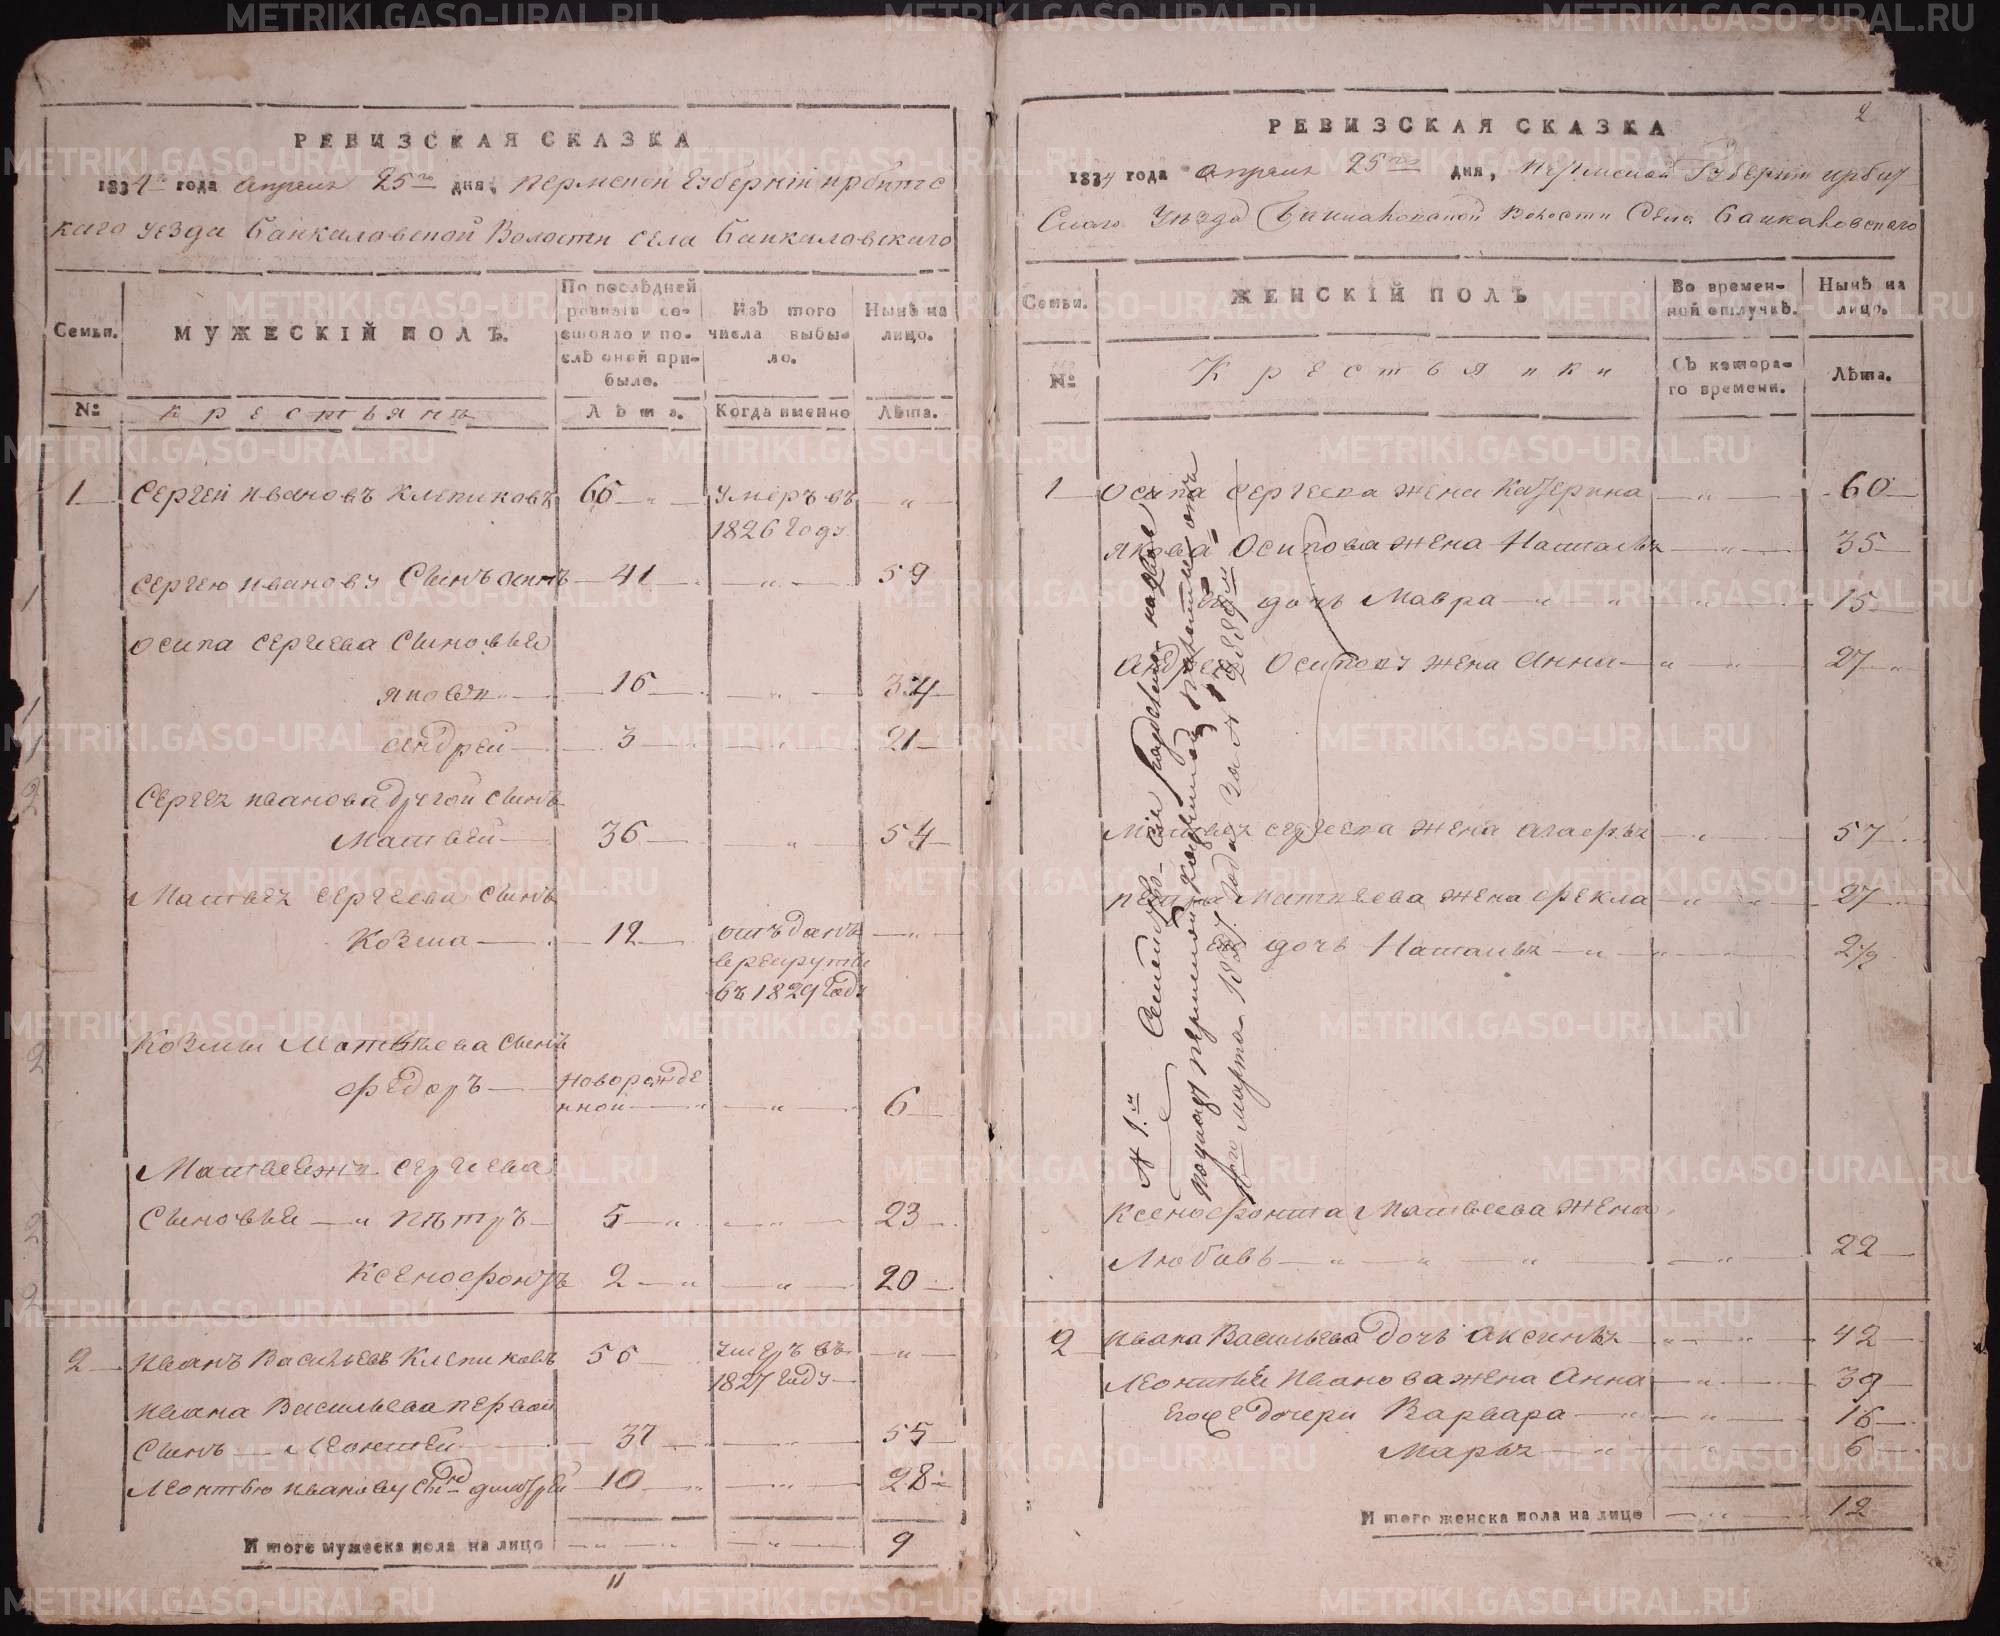 РЕВИЗСКАЯ СКАЗКА
1834го года апреля 25го дня, пермской губернии ирбитс
каго уезда Баикаловской Волости села Баикаловскаго
Семьи. МУЖЕСКІЙ ПОЛЪ. По послѣдней ревизіи состояло и послѣ оной прибыло. Изъ того числа выбыло. Нынѣ на лицо.
№: крестьянъ Лѣта. Когда именно Лѣта.
1 Сергей ивановъ Клепиковъ 65 умеръ въ
1826 году
Сергею иванову Сынъ осипъ 41 59
осипа сергиева Сыновья
яковъ 16 34
андрей 3 21
Сергея иванова другой сынъ
Матвей 36 54
Матвея сергеева сынъ
Козма 12 отъданъ
в рекруты
въ 1829 году
Козмы Матвѣева сынъ
федоръ новорожде
нной 6
Матвея сергиева
Сыновья петръ 5 23
Ксенофонтъ 2 20
2 иванъ Васильевъ Клепиковъ 55 умеръ въ
1827 году
ивана Васильева первой
сынъ Леонтей 37 55
Леонтью иванову сынъ дмитрей 10 28
И того мужеска пола на лицо 9
11
2
РЕВИЗСКАЯ СКАЗКА
1834 года апреля 25го дня, пермской Губернии ирбит
скаго Уезда Баикаловской волости Села Баикаловскаго
Семьи. ЖЕНСКІЙ ПОЛЪ Во временной отлучкѣ. Нынѣ на лицо.
№: Крестьянки Съ котораго времени. Лѣта.
1 осипа сергеева жена Катерина 60
якова осипова жена Наталья 35
дочь Мавра 15
андрея осипова жена анна 27
Матвея сергеева жена агафья 57
петра Матвеева жена фекла 27
дочь Наталья 2/9
Ксенофонта Матвеева жена
Любовь 22
2 ивана Васильева дочь аксинья 42
Леонтья иванова жена анна 39
дочери Варвара 16
Марья 6
И того женска пола на лицо 12
№ 1й
марта 1837 года за №
METRIKI.GASO-URAL.RU